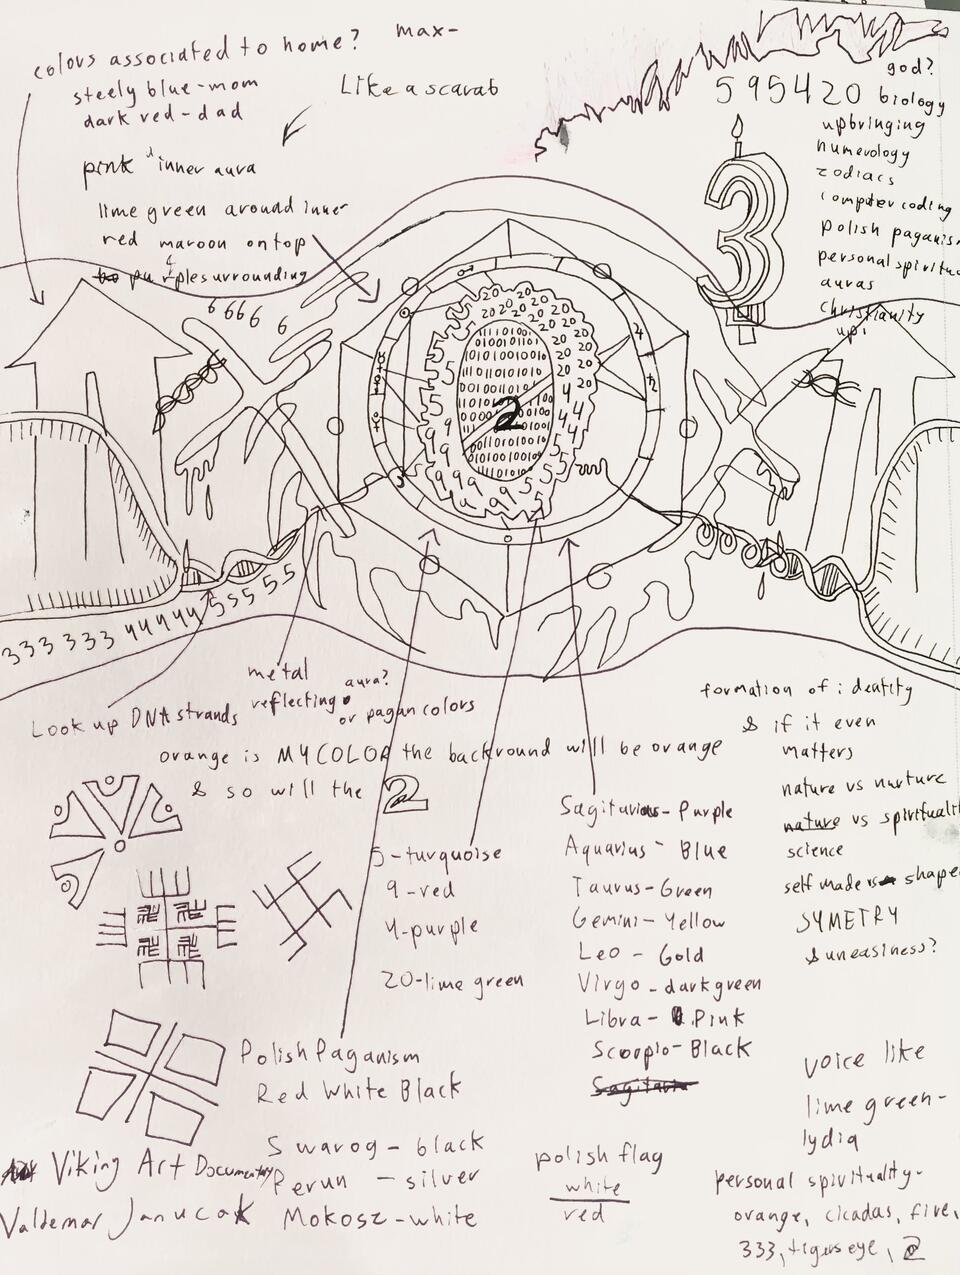 colors associated to home? max-
steely blue-mom
dark red-dad
Like a scarab
pink inner aura
lime green around inner
red maroon on top
purple surrounding
god?
595420 biology
upbringing
numerology
zodiacs
computer coding
polish paganism
personal spiritu
auras
christianity
up!
3
6 666 6 6
20 20 20 20
2
333 333 44444 555 5 5
metal
reflecting
aura?
or pagan colors
Look up DNA strands
orange is MY COLOR the backround will be orange
& so will the 2
formation of identity
& if it even
matters
nature vs nurture
nature vs spiritualit
science
self made vs shape
SYMETRY
& uneasiness?
5-turquoise
9-red
4-purple
20-lime green
Sagitarius-Purple
Aquarius-Blue
Taurus-Green
Gemini-Yellow
Leo-Gold
Virgo-dark green
Libra-Pink
Scorpio-Black
Sagitaria
Polish Paganism
Red White Black
Swarog-black
Perun-silver
Mokosz-white
polish flag
white
red
Viking Art Documentary
Valdemar Janucak
voice like
lime green-
lydia
personal spirituality-
orange, cicadas, fire,
333, tigers eye, 2